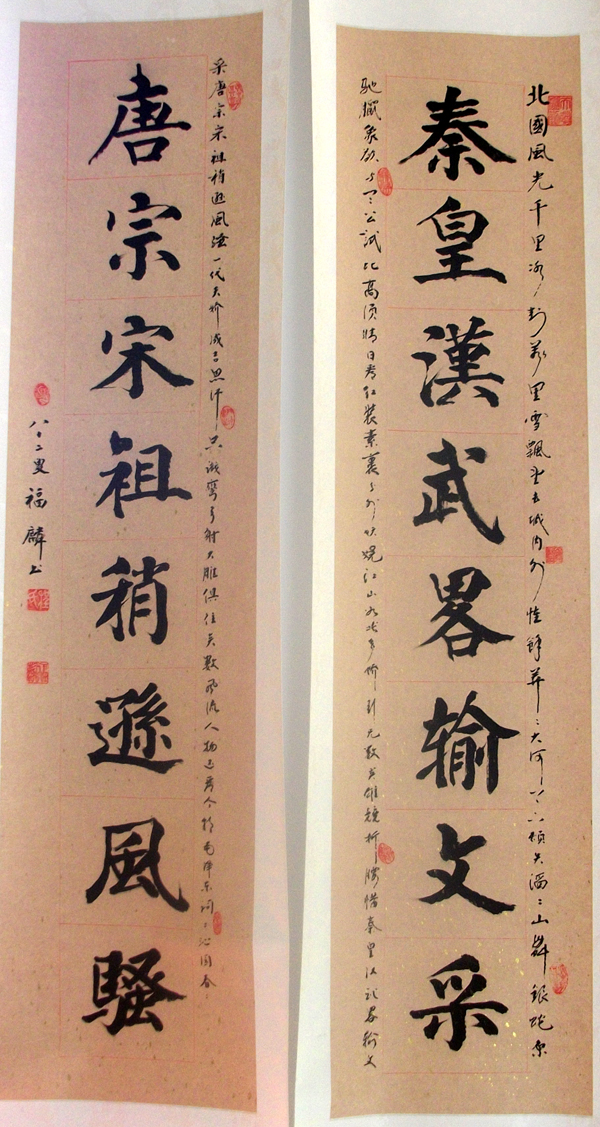 北國風光千里冰封萬里雪飄望長城内外惟餘莽〻大河上下頓失滔〻山舞銀蛇原
秦皇漢武畧输文采
馳蠟象欲与天公試比高須晴日看紅裝素裹分外妖嬈江山如此多嬌引无數英雄競折腰惜秦皇汉武畧输文
采唐宗宋祖稍遜風騷一代天嬌成吉思汗只識彎弓射大雕俱往矣數風流人物还看今朝毛泽东词沁园春
唐宗宋祖稍遜風騷
八十二叟福麟书